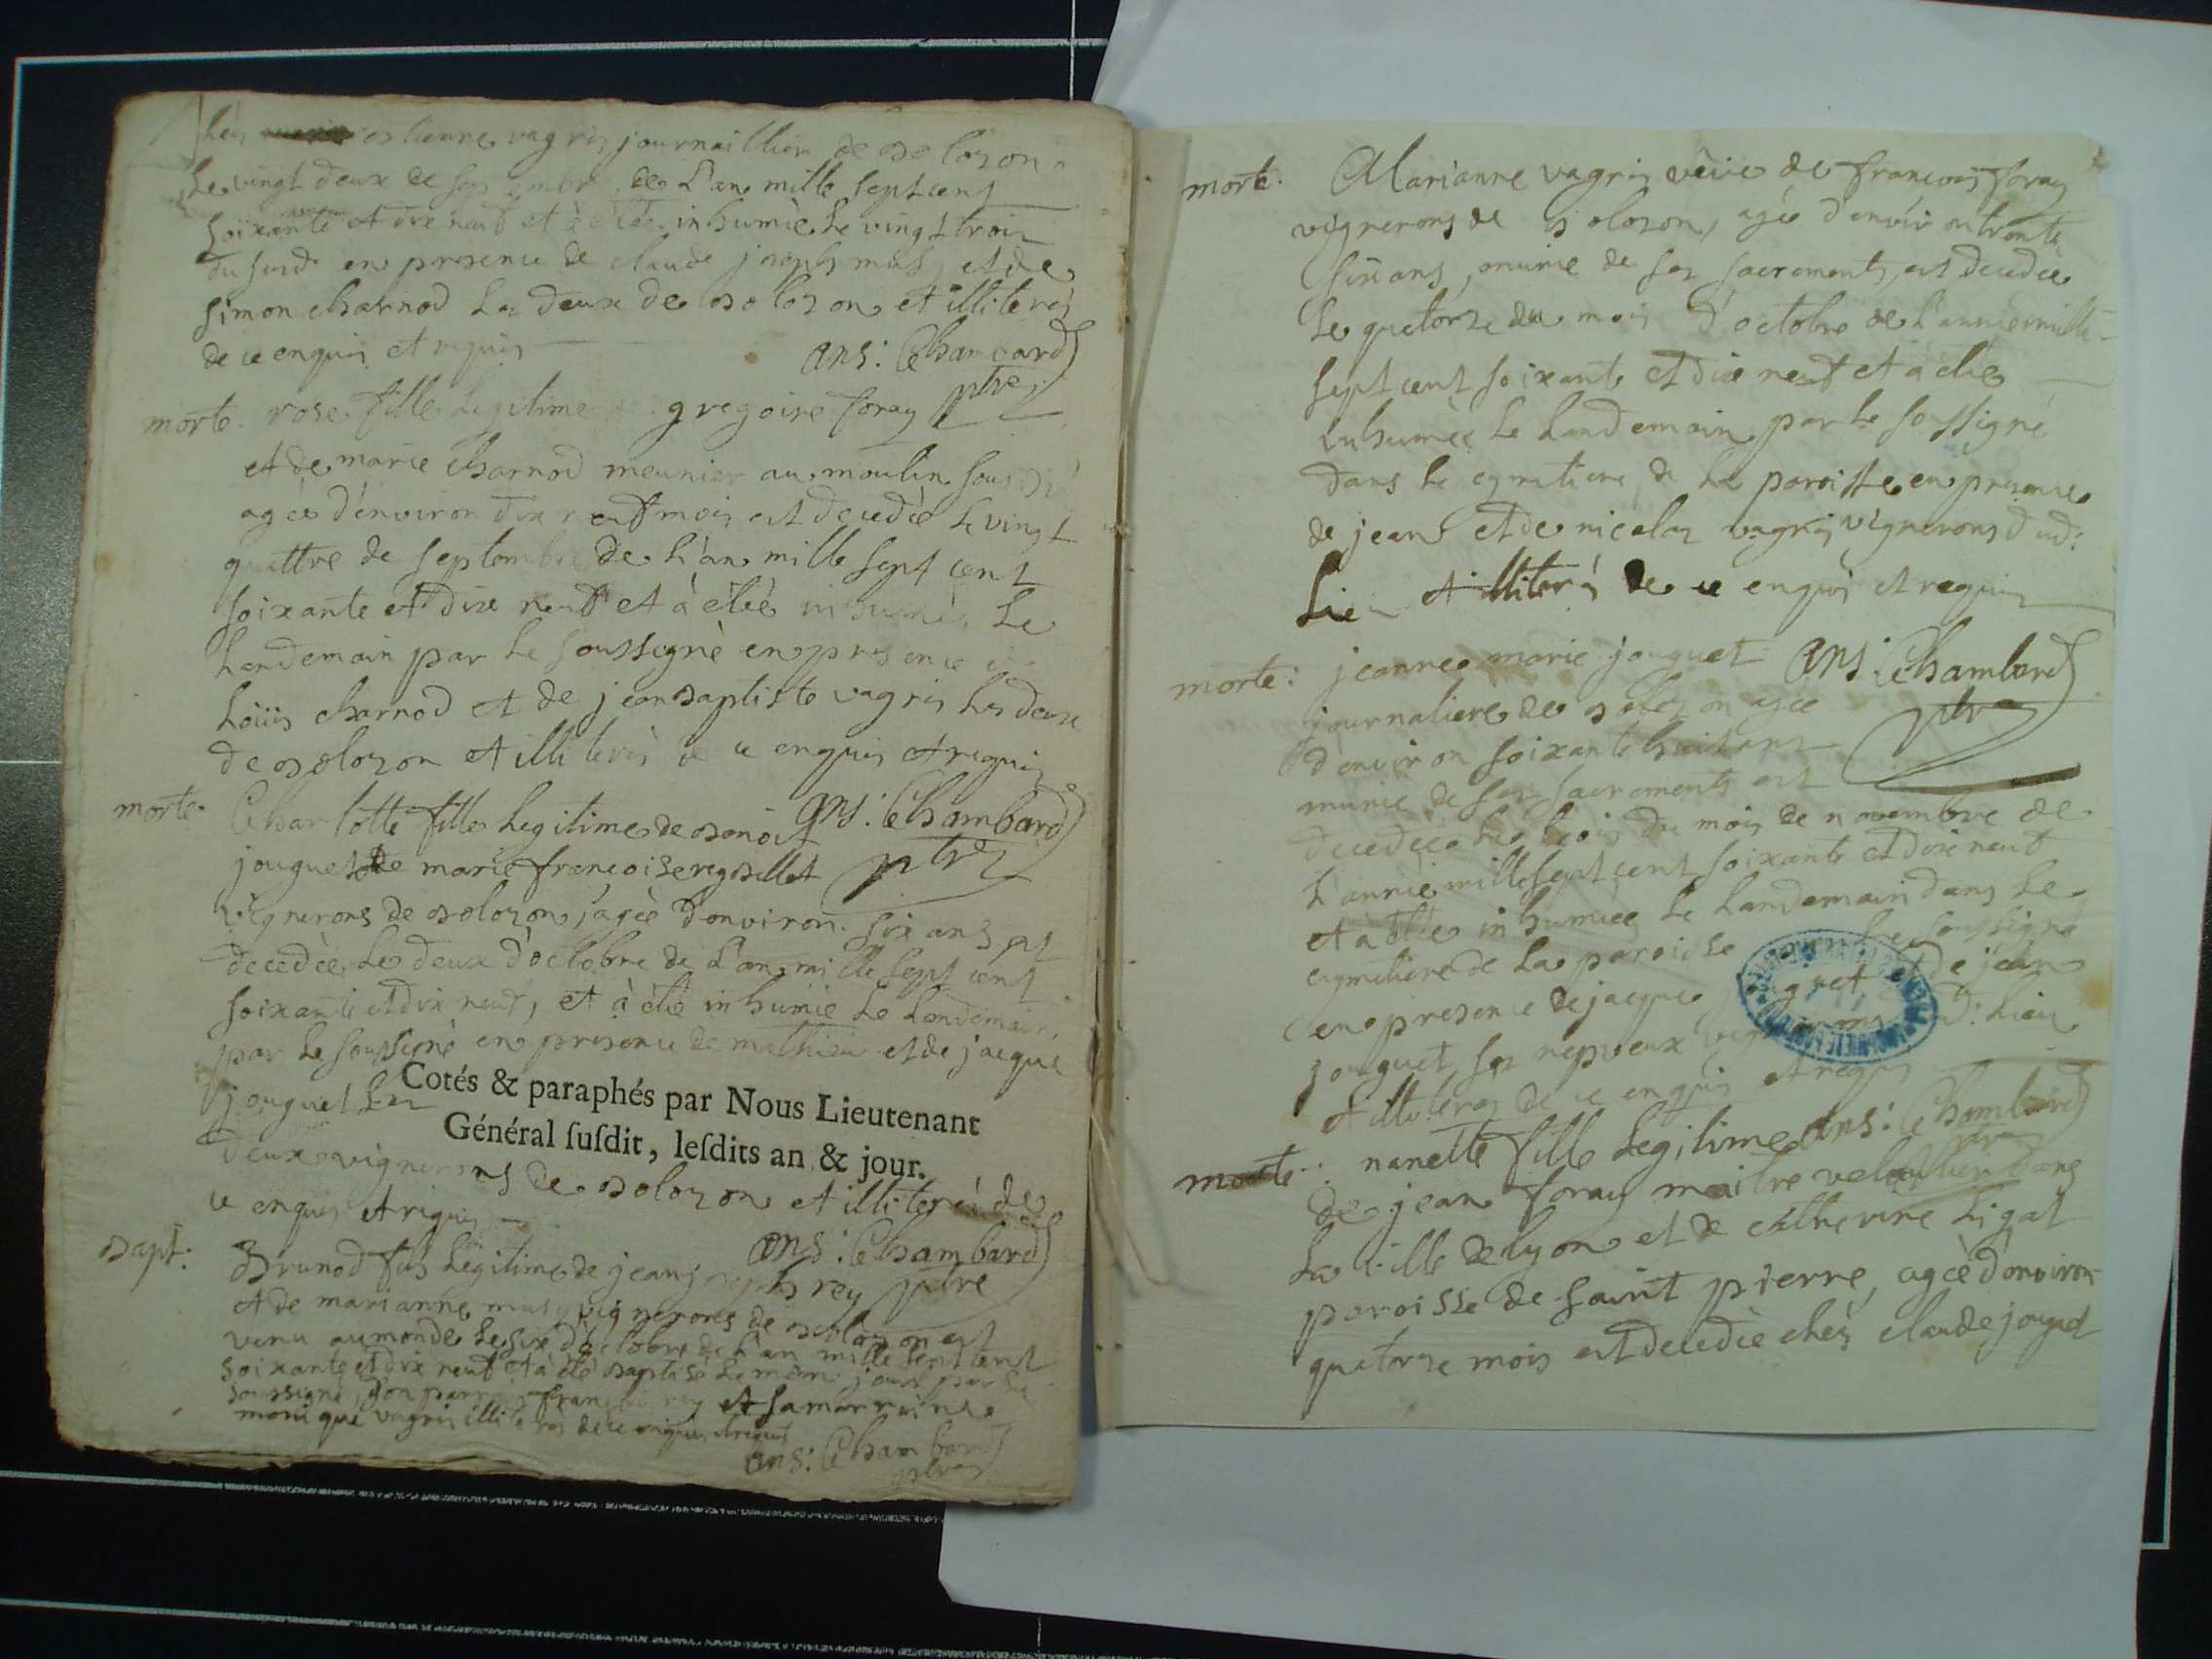 estienne vagris journaillier de bolozon
Le vingt deux de septembre de L'an mille sept cent
soixante et dix neuf et à etée inhumée Le vingt trois
dususd en presence de claude joseph musy et de
simon charnod Les deux de bolozon et illiterés
de ce enquis et requis
ans: Chambard
ptre
morte. rose fille Legitime de gregoire foray
et de marie charnod meunier au moulin sous
agée d'environ dix neuf mois est decedée Le vingt
quattre de septembre de L'an mille sept cent
soixante et dix neuf et à étéé inhumée Le
Landemain par Le soussigné en presence
Loüis charnod et de jean baptiste vagris Les deux
de bolozon et illiterés de ce enquis et requis
ans: Chambard
ptre
morte. Charlotte fille Legitime de benoit
jouguet de marie françoise reybillet
vignerons de bolozon, agée d'environ six ans est
decedée Le deux d'octobre de L'an mille sept cent
soixante et dix neuf, et à étée inhumée Le Landemain
par Le soussigné en presence de mathieu et de jacque
jouguet Les
Cotés & paraphés par Nous Lieutenant
Général ſuſdit, leſdits an & jour.
deux vignerons de bolozon et illiterés de
ce enquis et requis
ans: Chambard
ptre
bapt: Brunod fils Legitime de jean joseph rey
et de marianne musy vignerons de bolozon est
venu au monde Le six d'octobre de L'an mille sept cent
soixante et dix neuf et à été baptisé Le même jour par Le
soussigné, son parrain françois rey et sa marraine
monique vagris illiterés de ce enquis et requis
ans: Chambard
ptre
morte. Marianne vagris veüve de françois foray
vignerons de bolozon, agée d'environ trente
six ans, munie de ses sacrements est decedée
Le quatorze du mois d'octobre de L'année mille
sept cent soixante et dix neuf et a étée
inhumée Le Landemain par Le soussigné
dans Le cymetiere de La paroisse en presence
de jean et de nicolas vagris vignerons dud:
Lieu et illiterés de ce enquis et requis
ans: Chambard
ptre
morte: jeanne marie jouguet
journaliere de bolozon agée
d'environ soixante huit ans
munie de ses sacrements est
decedée Le trois du mois de novembre de
L'année mille sept cent soixante et dix neuf
et à étée inhumée Le Landemain dans Le
cymetiere de La paroisse Le soussigné
en presence de jacque et de jean
jouguet ses nepveux vignerons d: Lieu
et illiterés de ce enquis et requis
ans: Chambard
ptre
morte: nanette fille Legitime
de jean foray maitre veloutier dans
La ville de lyon et de catherine Ligat
paroisse de saint pierre, agée d'environ
quatorze mois est decedée chés claude jouguet